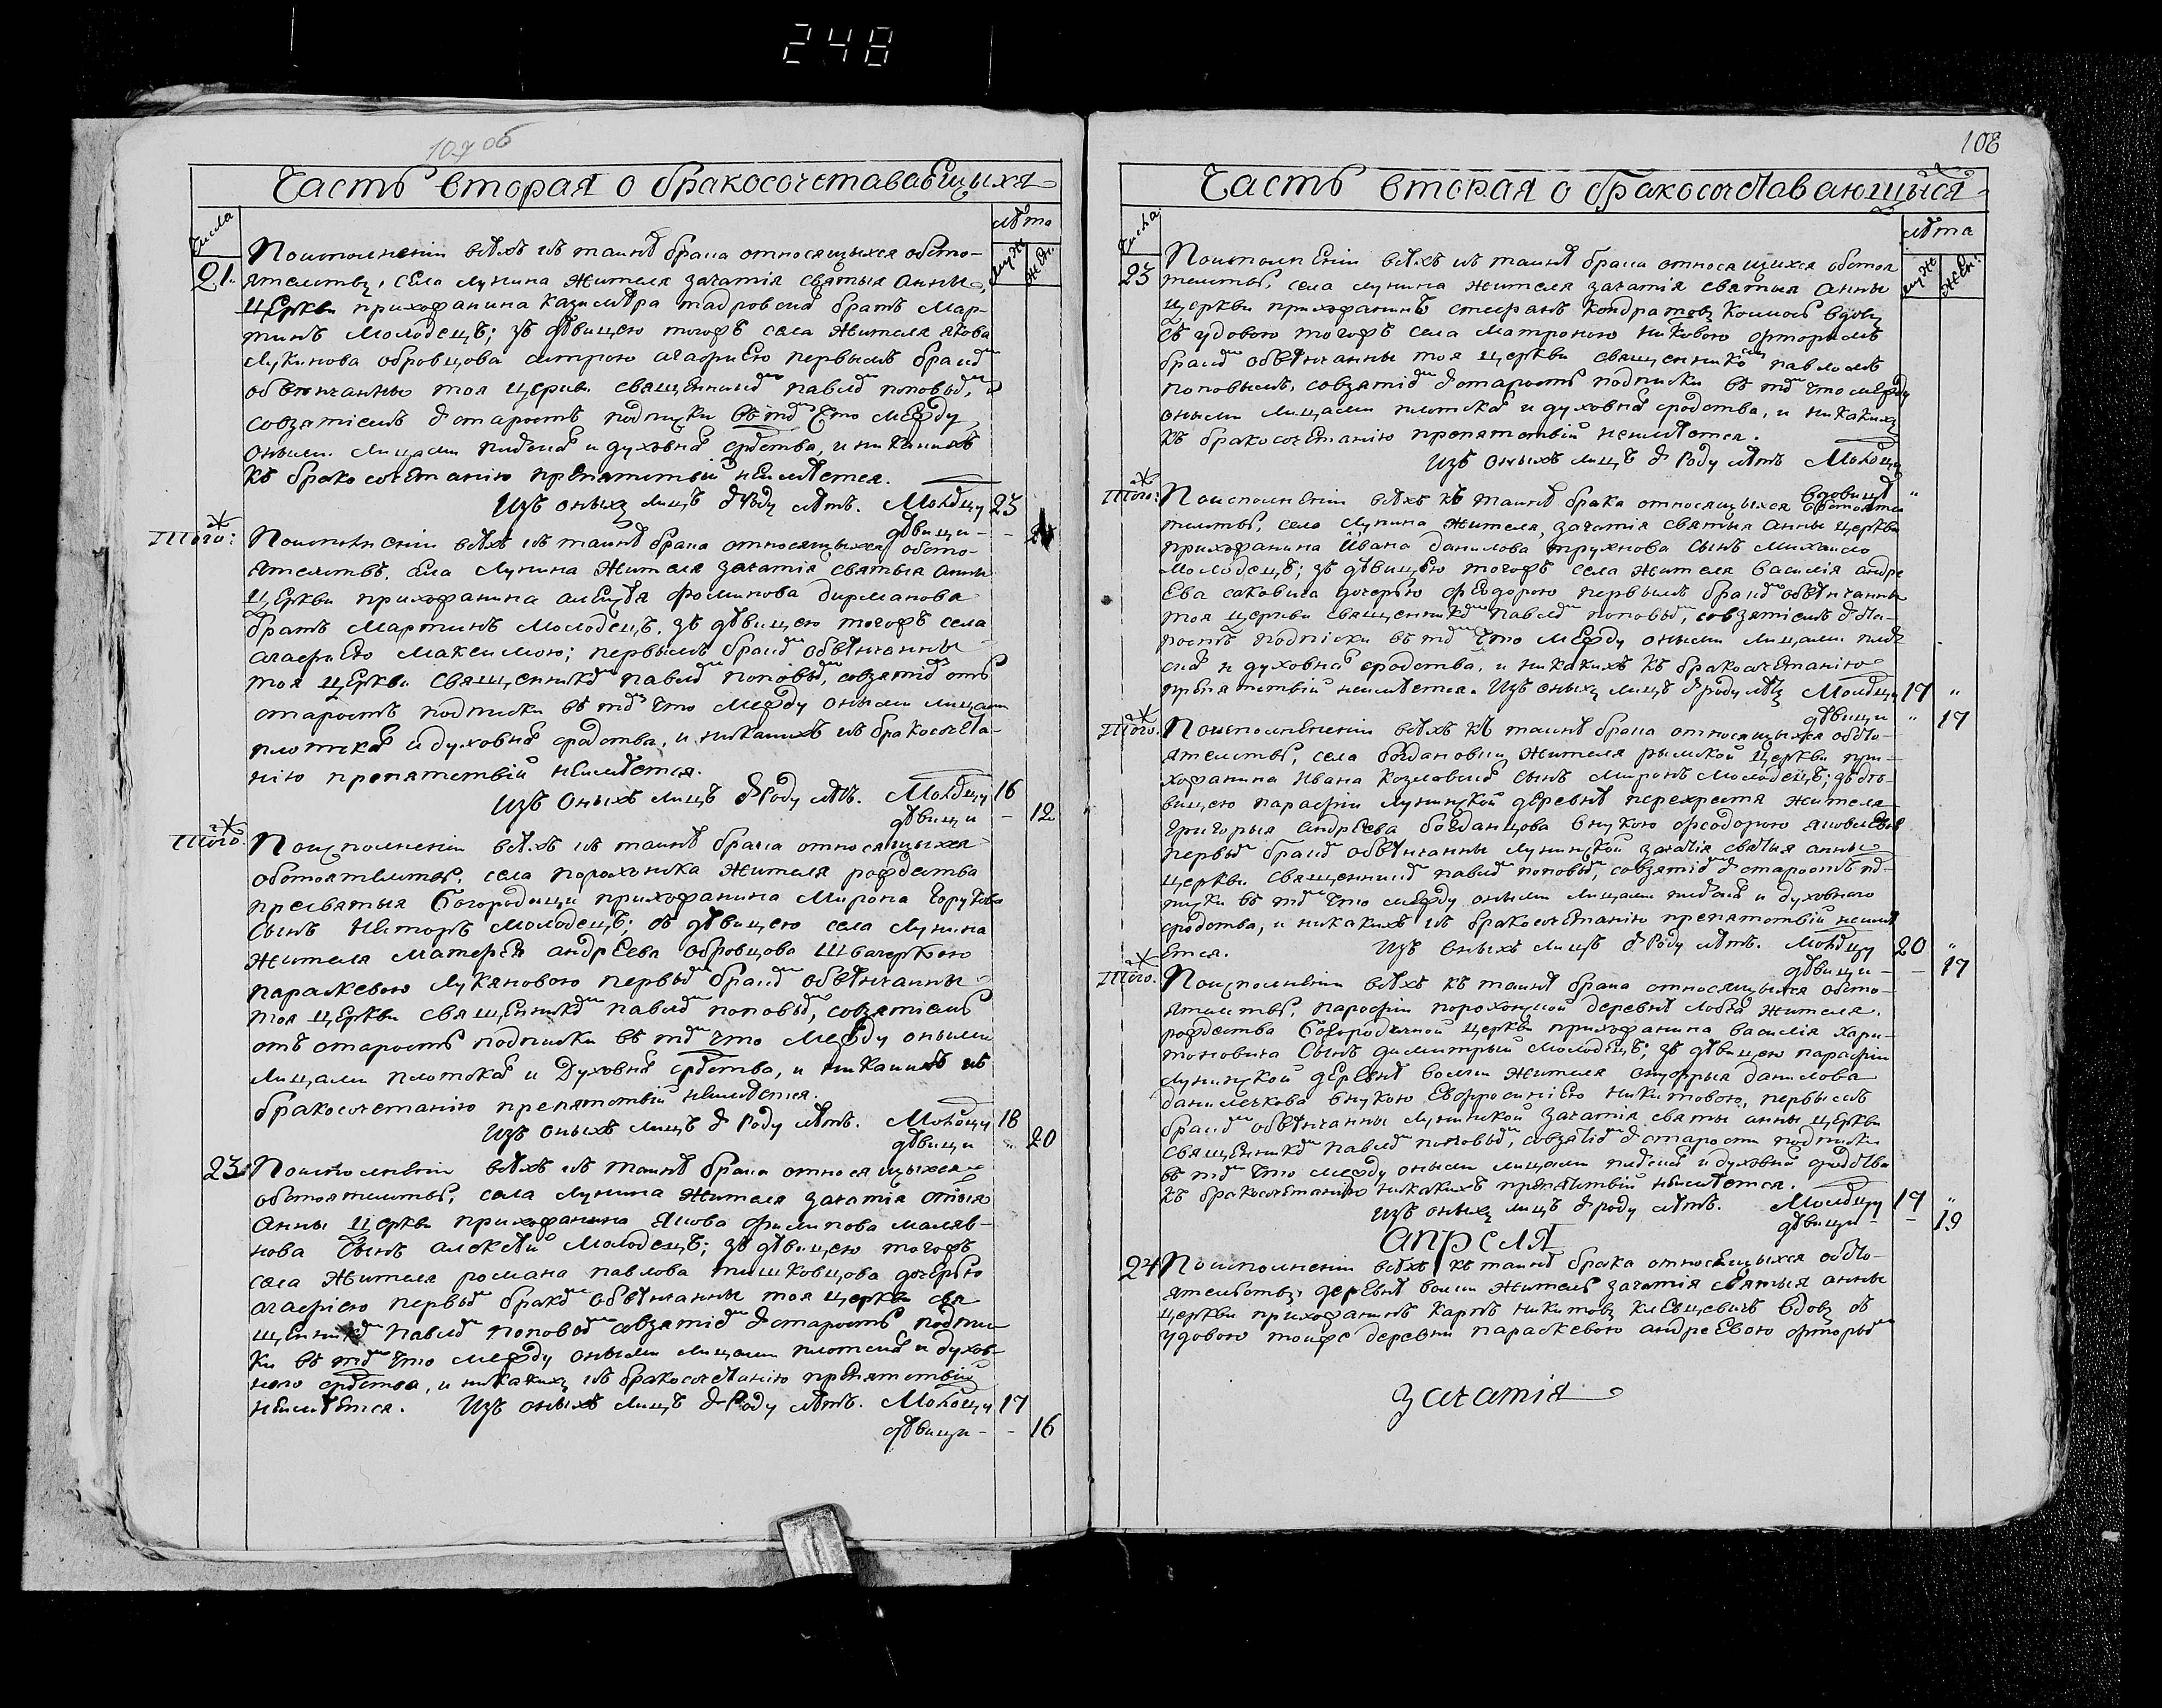 248
107 об
Часть вторая о бракосочетававщыхся
Числа
лѣта
муж
жен.
21.
Поисполненіи всѣхъ къ таинѣ брака относящыхся обсто-
ятелствъ, села Лунина жителя зачатія святыя Анны
церкви прихожанина Казимѣра братъ Мар-
тинъ молодецъ; зъ дѣвицею тогожъ села жителя Якова
Лукянова сестрою Агафиею первымъ бракомъ
обвѣнчанны тоя церкви священникомъ Павломъ Поповымъ,
совзятіемъ отстаростъ подписки въ томъ что между
оными лицами плотскаго и духовнаго сродства, и никакихъ
къ бракосочетанію препятствій неимѣется.
Изъ оныхъ лицъ отроду лѣтъ. Молодцу 23
дѣвицы -
Того:
Поисполненіи всѣхъ къ таинѣ брака относящыхся обсто-
ятелствъ, села Лунина жителя зачатія святыя Анны
церкви прихожанина Алексѣя Фоминова Дирманова
братъ Мартинъ молодецъ, зъ дѣвицею тогожъ села
Агафиею Максимою; первымъ бракомъ обвѣнчанны
тоя церкви священникомъ Павломъ Поповымъ, совзятіемъ отъ
старостъ подписки въ томъ что между оными лицами
плотскаго и духовнаго сродства, и никакихъ къ бракосочета-
нію препятствій неимѣется.
Изъ оныхъ лицъ отроду лѣтъ. Молодцу 16
дѣвицы - 12
Того.
Поисполненіи всѣхъ къ таинѣ брака относящыхся
обстоятелствъ, села Порохонска жителя рождества
пресвятыя Богородицы прихожанина Мирона
сынъ молодецъ; съ дѣвицею села Лунина
жителя Матфея Андреева швагеркою
Параскевою Лукяновою первымъ бракомъ обвѣнчанны
тоя церкви священникомъ Павломъ Поповымъ, совзятіемъ
отъ старостъ подписки въ томъ что между оными
лицами плотскаго и духовнаго сродства, и никакихъ къ
бракосочетанію препятствій неимѣется.
Изъ оныхъ лицъ отроду лѣтъ. Молодцу 18
дѣвицы " 20
23
Поисполненіи всѣхъ къ таинѣ брака относящыхся
обстоятелствъ, села Лунина жителя зачатія святыя
Анны церкви прихожанина Якова Филипова Маляв-
нова сынъ Алексѣй молодецъ; зъ дѣвицею тогожъ
села жителя Романа Павлова Тишковцова дочерью
Агафиею первымъ бракомъ обвѣнчанны тоя церкви свя
щенникомъ Павломъ Поповымъ совзятіемъ отстаростъ подпис
ки въ томъ что между оными лицами плотскаго и духов-
наго сродства, и никакихъ къ бракосочетанію препятствій
неимѣется. Изъ оныхъ лицъ отроду лѣтъ. Молодцу 17
дѣвицы - - 16
108
Часть вторая о бракосочетавающыяся
Числа
лѣта
муж
жен:
23
Поисполненіи всѣхъ къ таинѣ брака относящихся обстоя
телствъ, села Лунина жителя зачатія святыя Анны
церкви прихожанинъ Стефанъ Кондратовъ вдовъ
съ удовою тогожъ села Матроною вторымъ
бракомъ обвѣнчанны тоя церкви священникомъ Павломъ
Поповымъ, совзятіемъ отстаростъ подписки въ томъ что между
оными лицами плотскаго и духовнаго сродства, и никакихъ
къ бракосочетанію препятствій неимѣется.
Изъ оныхъ лицъ отроду лѣтъ Молодцу
вдовицѣ "
Того:
Поисполненіи всѣхъ къ таинѣ брака относящыхся обстоя
телствъ, села Лунина жителя, зачатія святыя Анны церкви
прихожанина Ивана Данилова Трухнова сынъ Михаило
молодецъ; зъ дѣвицею тогожъ села жителя Василія Андре
ева Саковича дочерью Феодорою первымъ бракомъ обвѣнчанны
тоя церкви священникомъ Павломъ Поповымъ, совзятіемъ отста-
ростъ подписки въ томъ что между оными лицами плот
скаго и духовнаго сродства, и никакихъ къ бракосочетанію
препятствій неимѣется. Изъ оныхъ лицъ отроду лѣтъ Молодцу 17 "
дѣвицы " 17
Того.
Поисполненіи всѣхъ къ таинѣ брака относящыхся обсто-
ятелствъ, села Богдановки жителя рымской церкви при-
хожанина Ивана Козловскаго сынъ Миронъ молодецъ; зъ дѣ-
вицею парафіи Лунинской деревнѣ Перехрестя жителя
Григорыя Андреева Богданцова внукою Феодорою
первымъ бракомъ обвѣнчанны Лунинской зачатія святыя Анны
церкви священникомъ Павломъ Поповымъ, совзятіемъ отстаростъ под-
писки въ томъ что между оными лицами плотскаго и духовнаго
сродства, и никакихъ къ бракосочетанію препятствій неимѣ
ется. Изъ оныхъ лицъ отроду лѣтъ. Молодцу 20 "
дѣвицы - - 17
Того.
Поисполненіи всѣхъ къ таинѣ брака относящыхся обсто-
ятелствъ, парафіи Порохонской деревнѣ Лобча жителя.
рождества Богородичной церкви прихожанина Василія Хари-
тоновича сынъ Димитрый молодецъ; зъ дѣвицею парафіи
Лунинской деревнѣ Вольки жителя Онуфрыя Данилова
Данилечкова внукою Евфросиніею Никитовою, первымъ
бракомъ обвѣнчанны Лунинской зачатія святы Анны церкви
священникомъ Павломъ Поповымъ, совзятіемъ отстарости подписки
въ томъ что между оными лицами плотскаго и духовнаго сродства
къ бракосочетанію никакихъ препятствій неимѣется.
Изъ оныхъ лицъ отроду лѣтъ. Молодцу 17 "
дѣвицы - - 19
Апреля
24
Поисполненіи всѣхъ къ таинѣ брака относящыхся обсто-
ятельствъ, деревнѣ Вольки житель зачатія святыя Анны
церкви прихожанинъ Карпъ Никитовъ Клевцевичъ вдовъ съ
удовою тоиже деревни Параскевою Андреевою вторымъ
Зачатія